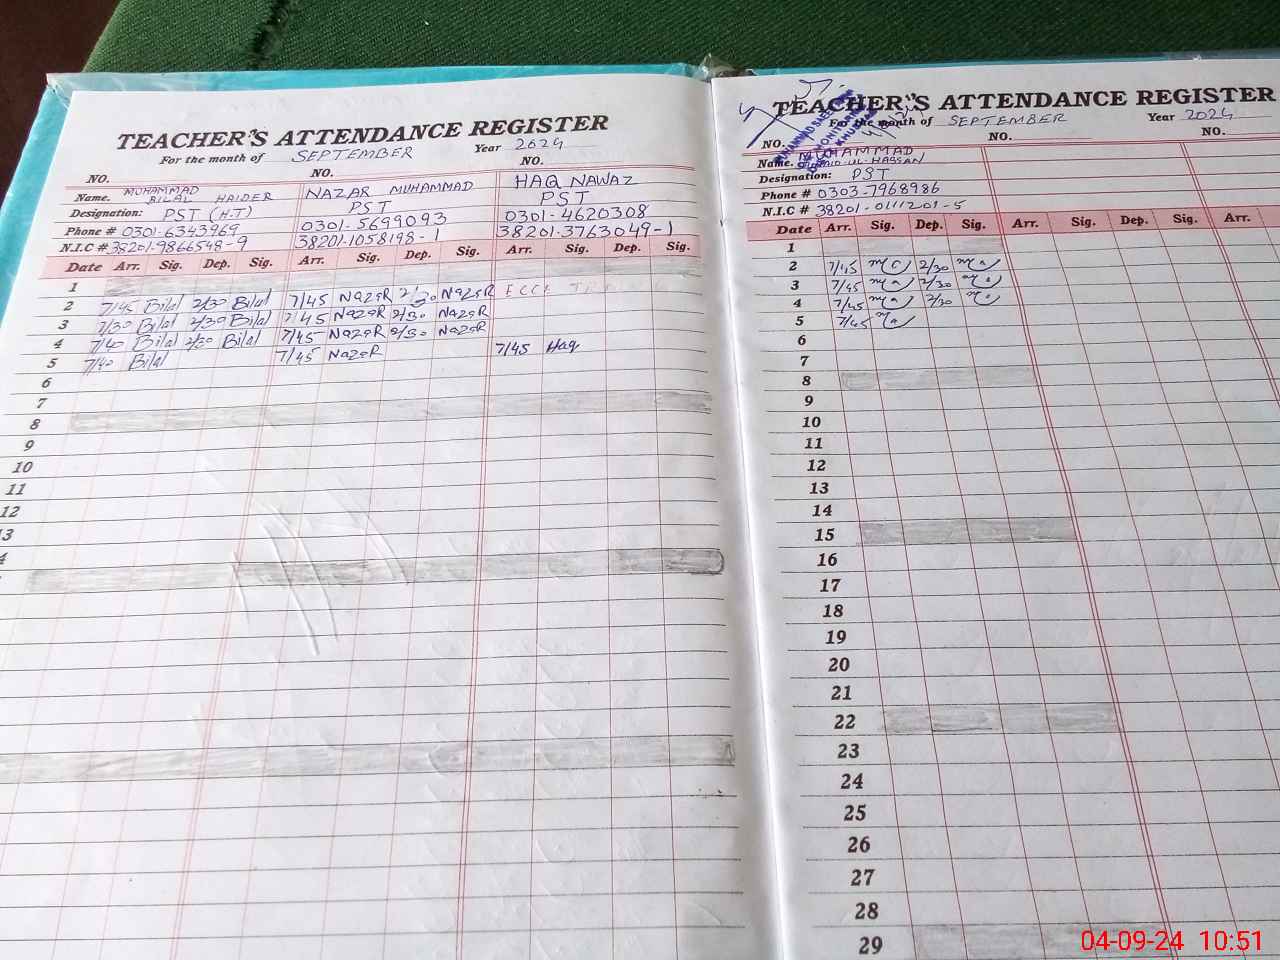 TEACHER'S ATTENDANCE REGISTER
For the month of SEPTEMBER Year 2024
NO. NO. NO.
Name. MUHAMMAD BILAL HAIDER NAZAR MUHAMMAD HAQ NAWAZ
Designation: PST (H.T) PST PST
Phone # 0301-6343969 0301-5699093 0301-4620308
N.I.C # 38201-9866548-9 38201-1058198-1 38201-3763049-1
Date Arr. Sig. Dep. Sig. Arr. Sig. Dep. Sig. Arr. Sig. Dep. Sig.
1
2 7/45 Bilal 2/30 Bilal 7/45 NazaR 2/30 NazaR
3 7/30 Bilal 2/30 Bilal 7/45 NazaR 2/30 NazaR
4 7/40 Bilal 2/30 Bilal 7/45 NazaR 2/30 NazaR
5 7/40 Bilal 7/45 NazaR 7/45 Haq
6
7
8
9
10
11
12
13
TEACHER'S ATTENDANCE REGISTER
For the month of SEPTEMBER Year 2024
NO. NO. NO.
Name. MUHAMMAD UL-HASSAN
Designation: PST
Phone # 0303-7968986
N.I.C # 38201-0111201-5
Date Arr. Sig. Dep. Sig. Arr. Sig. Dep. Sig. Arr.
1
2 7/45 2/30
3 7/45 2/30
4 7/45 2/30
5 7/45
6
7
8
9
10
11
12
13
14
15
16
17
18
19
20
21
22
23
24
25
26
27
28
29
04-09-24 10:51